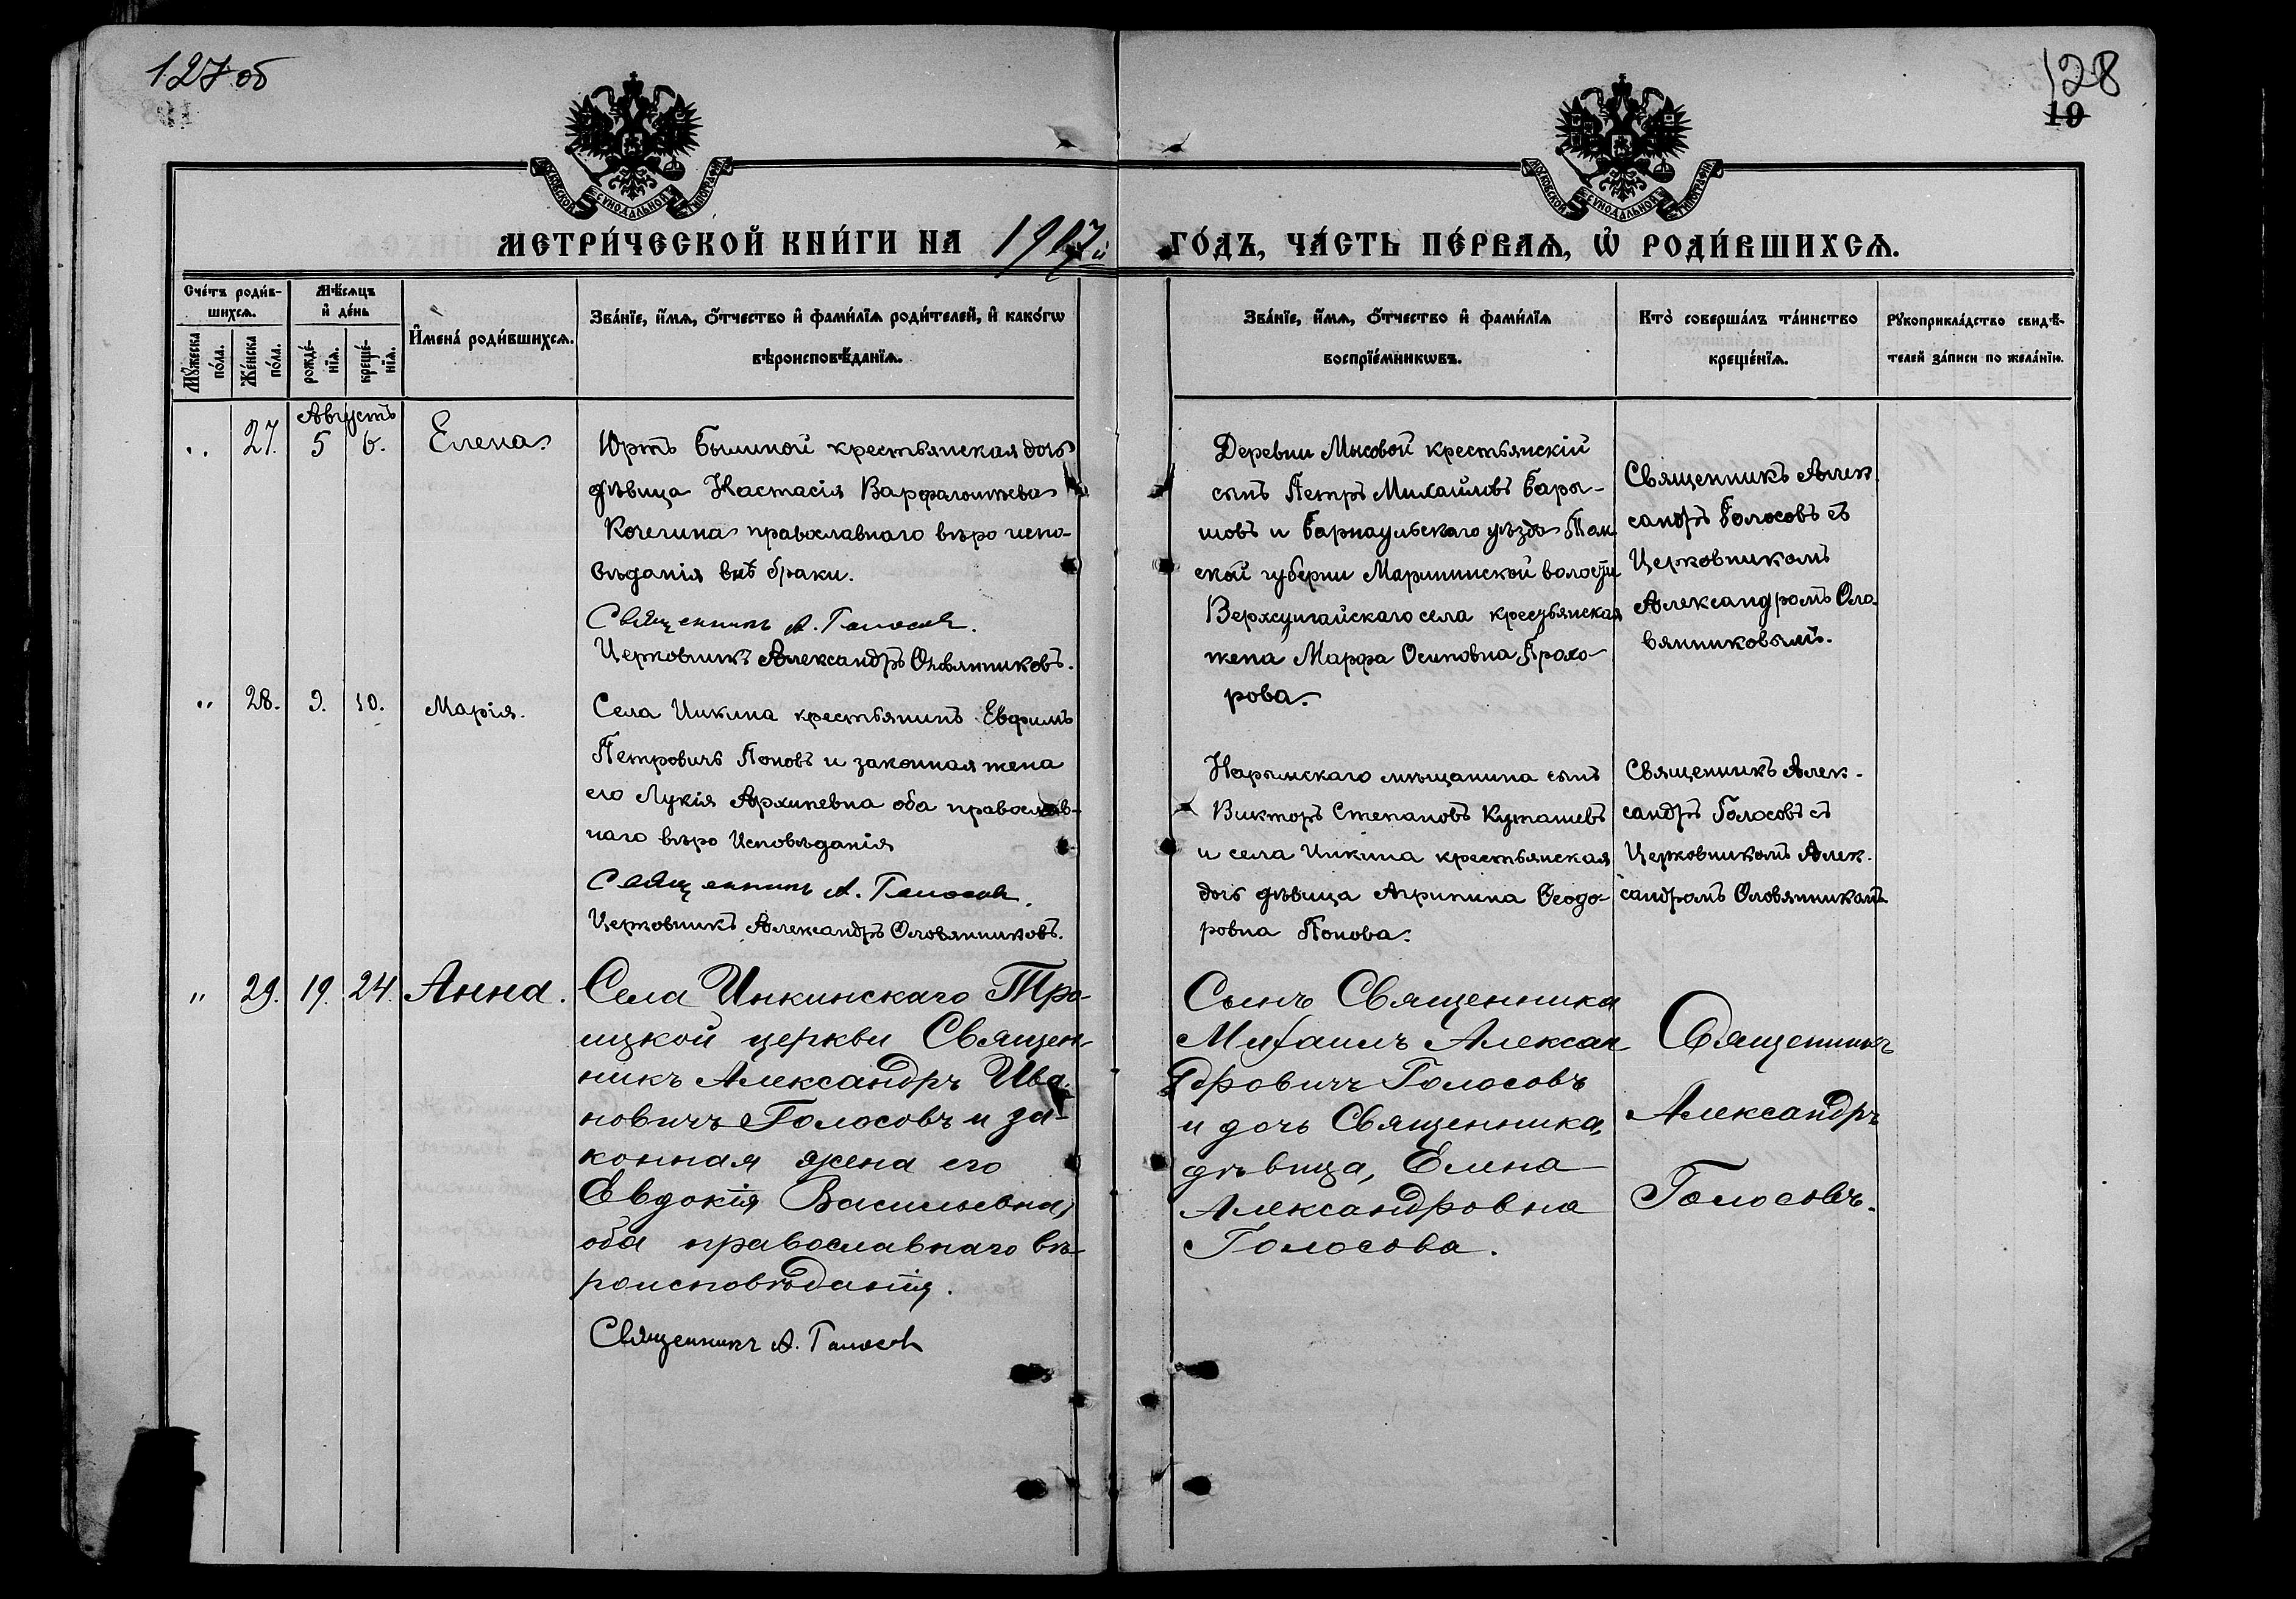 127 об
128
19
МОСКОВСКОЙ СѴНОДАЛЬНОЙ ТИПОГРАФІИ
МОСКОВСКОЙ СѴНОДАЛЬНОЙ ТИПОГРАФІИ
МЕТРИ́ЧЕСКОЙ КНИ́ГИ НА 1907й ГО́ДЪ, ЧА́СТЬ ПЕ́РВАѦ, Ѡ҆ РОДИ́ВШИХСѦ.
Сче́тъ роди́в-
шихсѧ.
Мꙋ́жеска по́ла.
Же́нска по́ла.
Мѣ́сѧцъ
и҆ де́нь
рожде́-
нїѧ.
креще́-
нїѧ.
И҆мена̀ роди́вшихсѧ.
Зва́нїе, и҆́мѧ, ѻ҆́тчество и҆ фами́лїѧ роди́телей, и҆ како́гѡ
вѣроисповѣ́данїѧ.
Зва́нїе, и҆́мѧ, ѻ҆́тчество и҆ фами́лїѧ
воспрїе́мникѡвъ.
Кто̀ соверша́лъ та́инство
креще́нїѧ.
Рꙋкоприкла́дство свидѣ́-
телей за́писи по жела́нїю.
Августъ
" 27. 5 6. Елена
Юртъ крестьянская дочь
дѣвица Настасія Варфаломѣева
Кочегина православнаго вѣро испо-
вѣданія внѣ браки.
Священникъ А. Голосовъ.
Церковникъ Александръ Оловянниковъ.
Деревни Мысовой крестьянскій
сынъ Петръ Михайловъ Бары-
шовъ и Барнаульскаго уѣзда Том
ской губерни Маріинской волости
села крестьянская
жена Марфа Осиповна Прохо-
рова.
Священникъ Алек
сандръ Голосовъ съ
Церковникомъ
Александромъ Оло-
вянниковымъ.
" 28. 9. 10. Марія.
Села Инкина крестьянинъ Евфимъ
Петровичъ Поповъ и законная жена
его Лукія Архиповна оба православ-
наго вѣро Исповѣданія
Священникъ А. Голосовъ.
Церковникъ Александръ Оловянниковъ.
Нарымскаго мѣщанина сынъ
Викторъ Степановъ Куташевъ
и села Инкина крестьянская
дочь дѣвица Агрипина Ѳеодо-
ровна Попова.
Священникъ Алек-
сандръ Голосовъ съ
Церковникомъ Алек-
сандромъ
" 29. 19. 24. Анна.
Села Инкинскаго Тро-
ицкой церкви Священ-
никъ Александръ Ива-
новичъ Голосовъ и за-
конная жена его
Евдокія Васильевна,
оба православнаго вѣ-
роисповѣданія.
Священникъ А. Голосовъ
Сынъ Священника
Михаилъ Алексан
дровичъ Голосовъ
и дочь Священника,
дѣвица, Елена
Александровна
Голосова.
Священникъ
Александръ
Голосовъ.